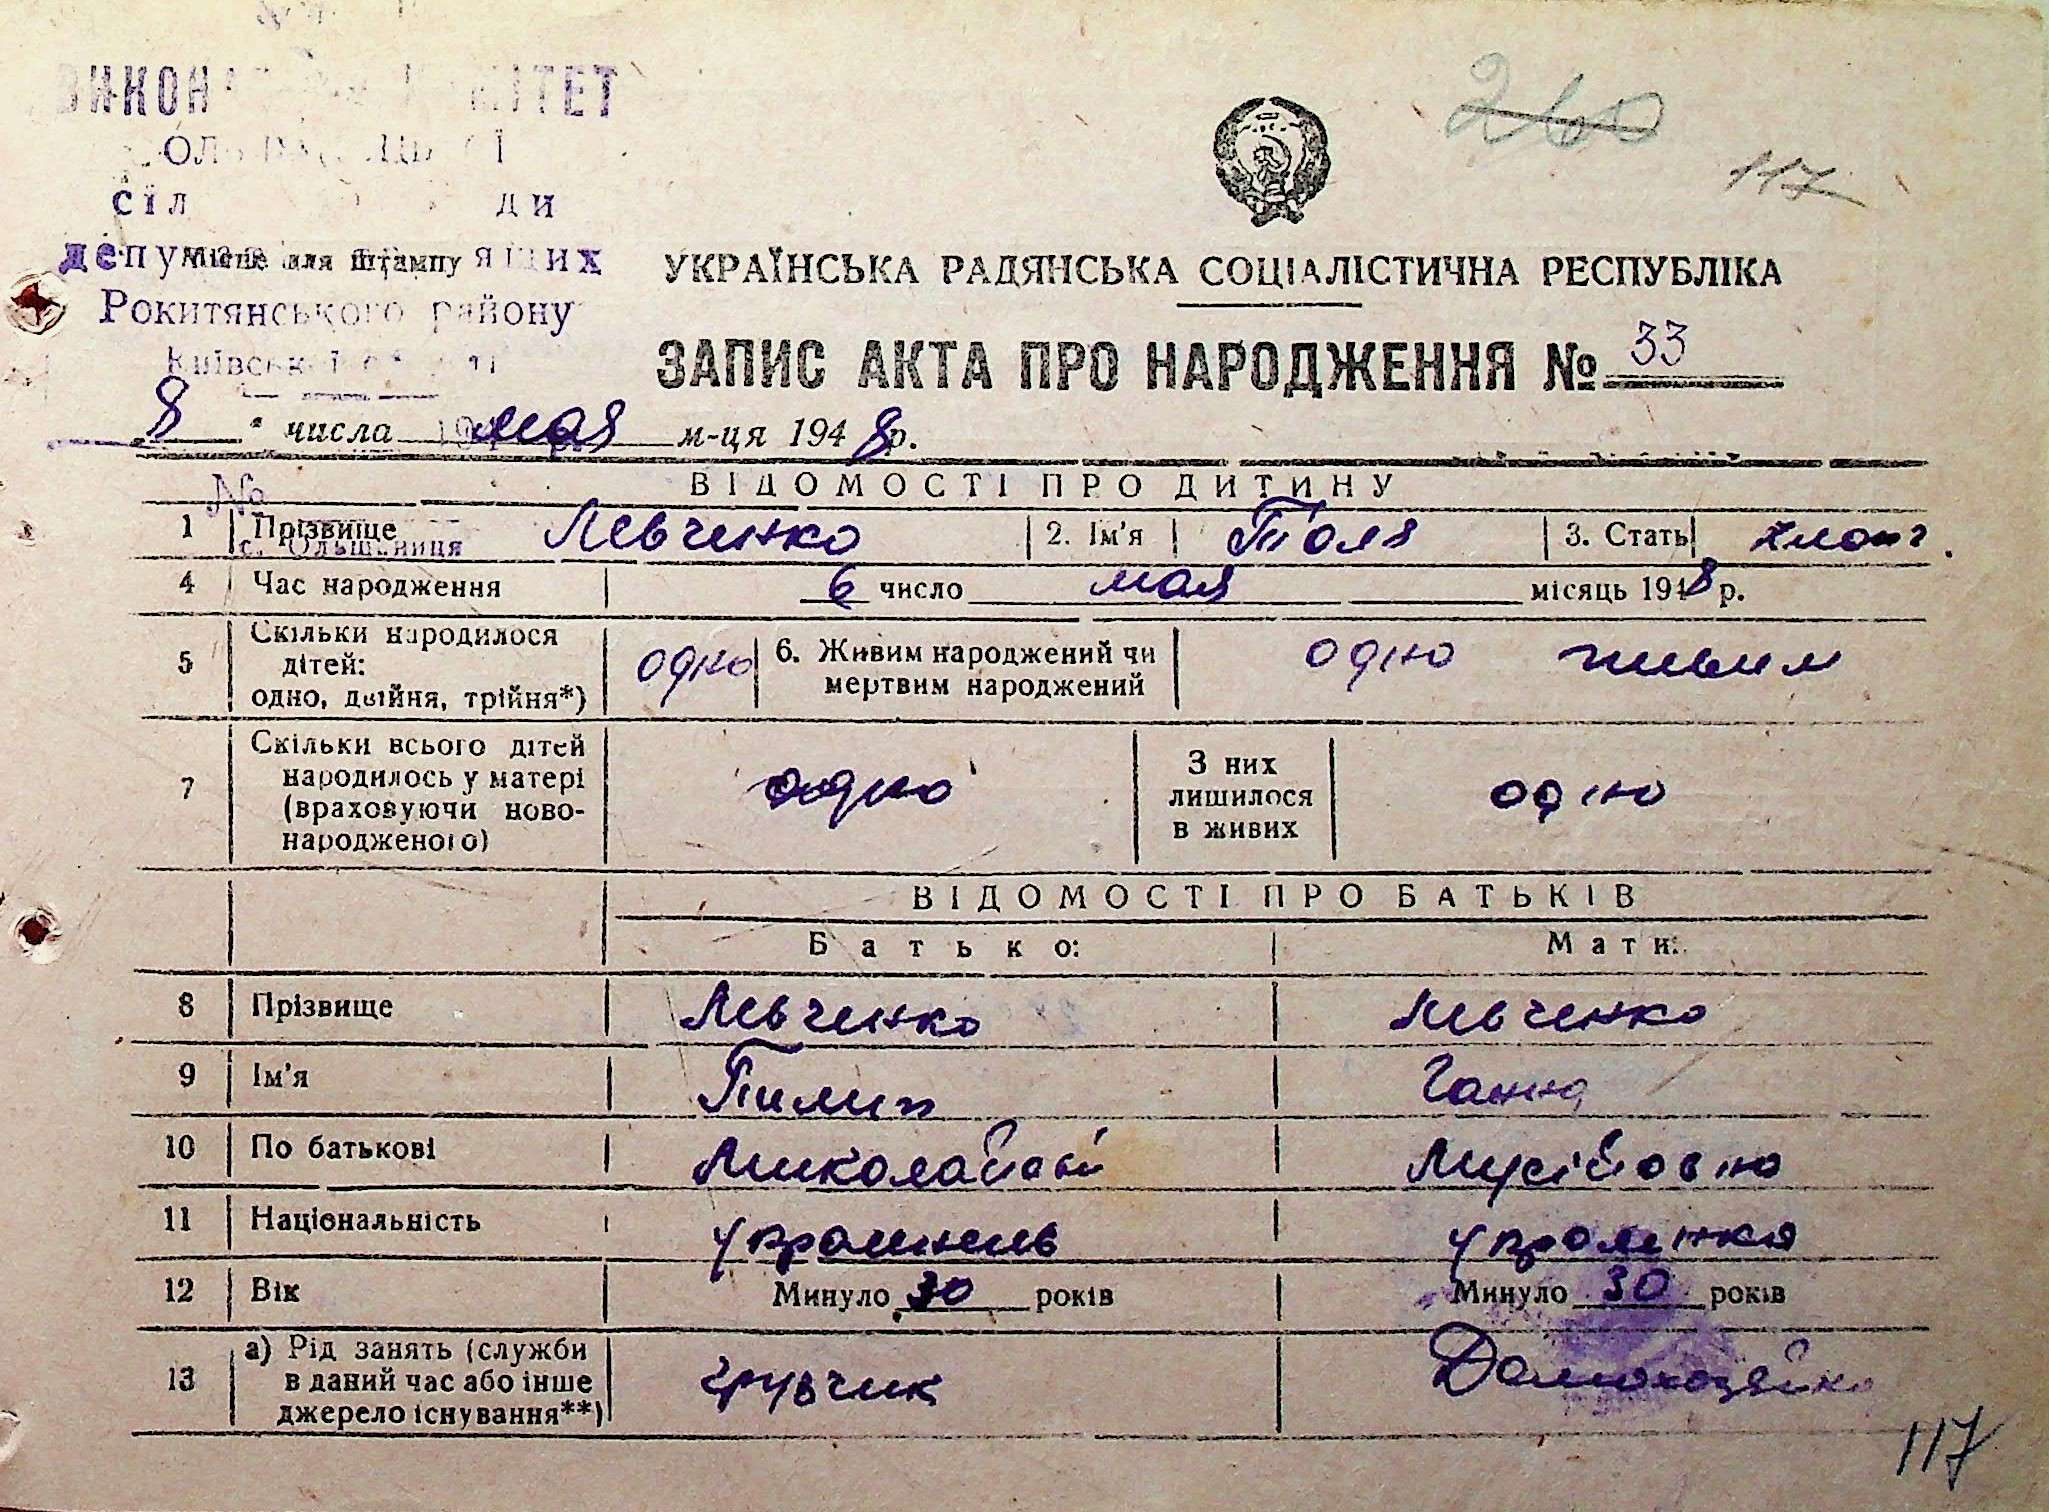 260
117
УКРАЇНСЬКА РАДЯНСЬКА СОЦІАЛІСТИЧНА РЕСПУБЛІКА
Місце для штампу
Рокитянського району
ЗАПИС АКТА ПРО НАРОДЖЕННЯ № 33
8 числа мая м-ця 1948 р.
№
с. Ольшаниця
ВІДОМОСТІ ПРО ДИТИНУ
1 Прізвище Левченко 2. Ім'я Толя 3. Стать
4 Час народження 6 число мая місяць 1948 р.
5 Скільки народилося дітей: одно, двійня, трійня*) одно 6. Живим народжений чи мертвим народжений одно живим
7 Скільки всього дітей народилось у матері (враховуючи новонародженого) одно З них лишилося в живих одно
ВІДОМОСТІ ПРО БАТЬКІВ
Батько: Мати:
8 Прізвище Левченко Левченко
9 Ім'я Пилип Ганна
10 По батькові Мусіївно
11 Національність
12 Вік Минуло 30 років Минуло 30 років
13 а) Рід занять (служби в даний час або інше джерело існування**) грузчик
117